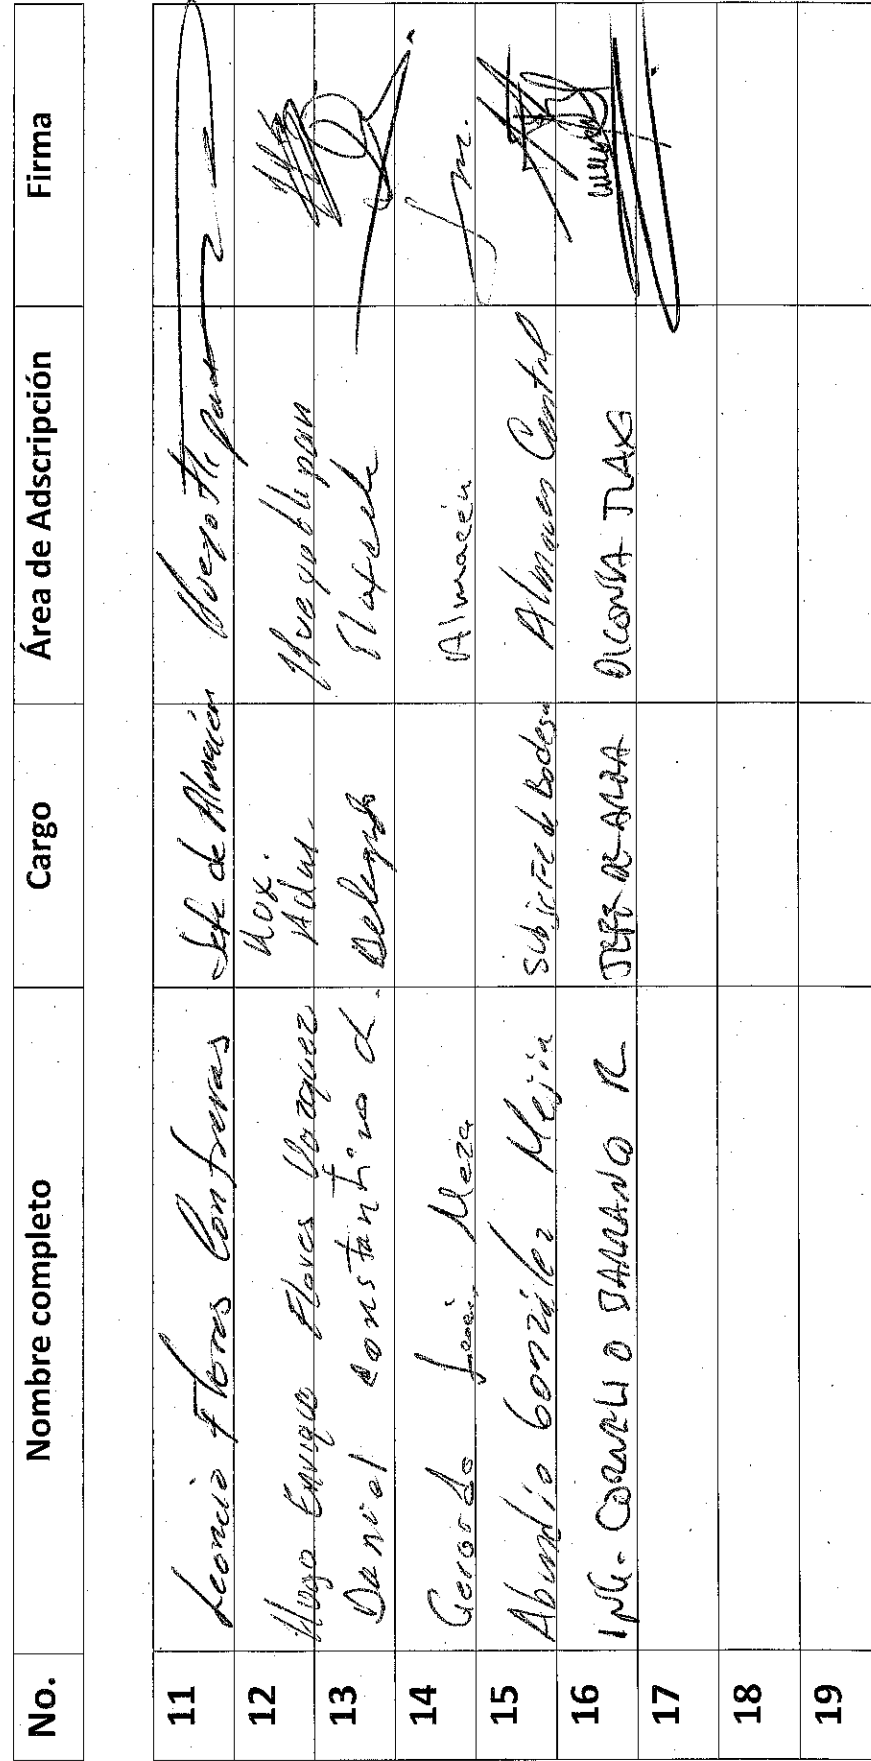 No. Nombre completo Cargo Área de Adscripción Firma
11 Leoncio Flores Contreras Jefe de Almacén
12 Hugo Enrique Flores Vazquez Aux. Adm.
13 Daniel Constantino L. Delegado Tlaxcala
14 Gerardo Meza Almacén
15 Abundio González Mejía Subjefe de Bodega Almacen Central
16 ING. CORNELIO R DICONSA TLAX
17
18
19